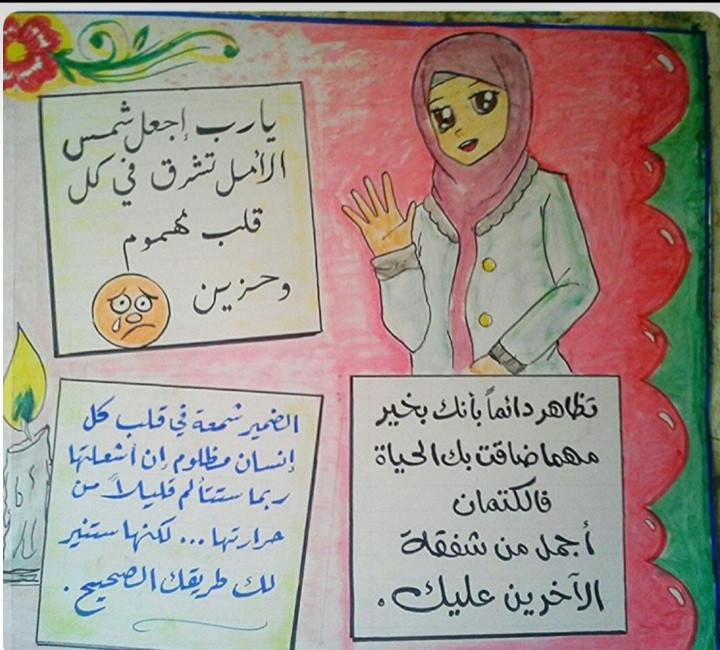 يارب إجعل شمس
الأمل تشرق في كل
قلب مهموم
وحزين
تظاهر دائماً بأنك بخير
مهما ضاقت بك الحياة
فالكتمان
أجمل من شفقة
الآخرين عليك.
الضمير شمعة في قلب كل
إنسان مظلوم إن أشعلتها
ربما ستتألم قليلاً من
حرارتها... لكنها ستنير
لك طريقك الصحيح.